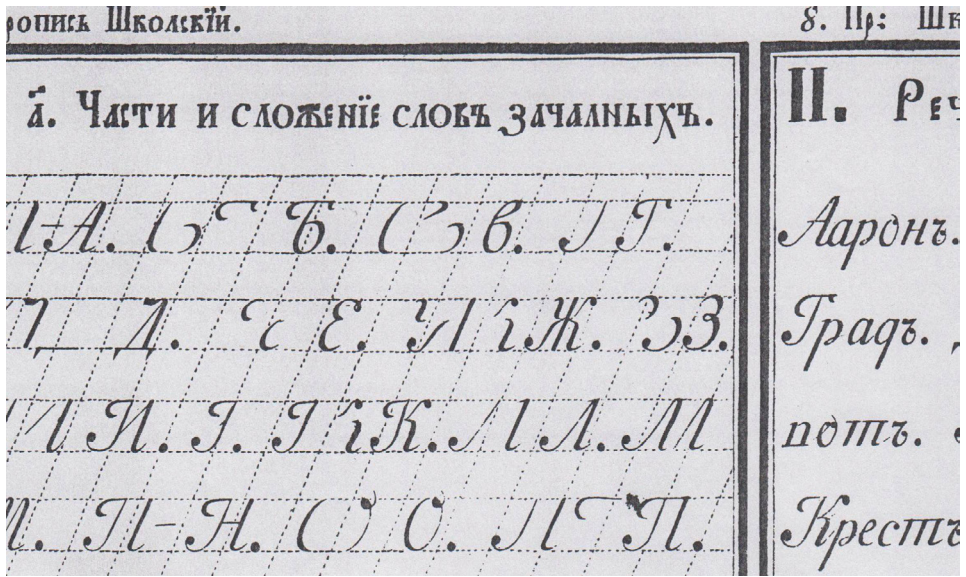 ропись Школскїй.
а҃. Части и сложенїе словъ зачалныхъ.
І-А. Б. В. Г.
Д. Е. Ж. З.
И. І. К. Л. М
М. П-Н. О О. П.
8. Пр: Шк
II. Реч
Ааронъ.
Градъ.
потъ.
Крестъ